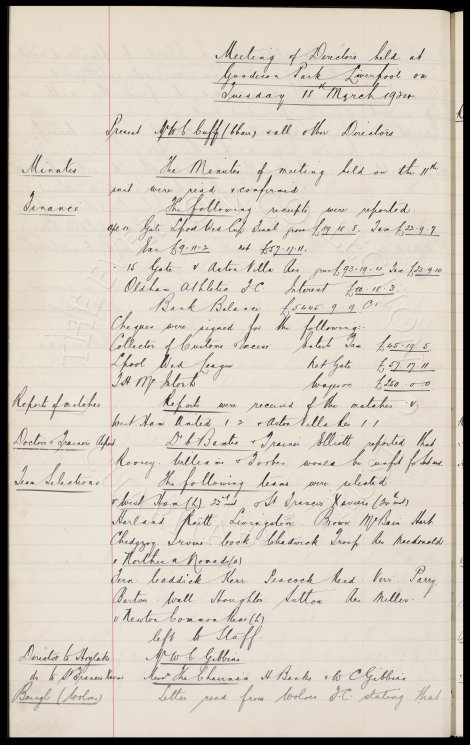 Meeting of Directors held at
Goodison Park Liverpool on
Tuesday 18th March 1924.
Present Mr W C Cuff (Chair) & all other Directors
Minutes The Minutes of meeting held on the 11th
inst were read & confirmed
Finance The following receipts were reported
Gate Lpool Wed Cup Final gross Tax £22.9.7
£9.11.2 net £57.17.11.
15 Gate v Aston Villa Res gross £93.19.4 Tax £23.9.10
Oldham Athletic F.C. Interest £10.15.3
Bank Balance £5445.9.9 Cr
Cheques were signed for the following:-
Collector of Customs & Excise Entert Tax £45.19.5
Lpool Wed League Net Gate £57.17.11
T H McIntosh wages £250.0.0
Reports of matches Reports were received of the matches v.
West Ham United 1 2 & Aston Villa Res 1 1
Doctors & Trainers Report Dr Baxter & Trainer Elliott reported that
Rooney Williams & Forbes would be unfit for
Team Selections The following teams were selected
v West Ham (h) 22nd inst & St Francis Xaviers (26th inst)
Harland Raitt Livingston Brown McBain Hart
Chedgzoy Irvine Cock Chadwick Troup Res McDonald
v Northern Nomads (a)
Fern Caddick Kerr Peacock Reid Virr Parry
Barton Wall Houghton Sutton Res Miller
v Newton Common Recs (h)
left to Staff
Director to Hoylake Mr W C Gibbins
do to St Francis Xaviers The Chairman H Banks & W C Gibbins
Baugh (Wolves) Letter read from Wolves F.C. stating that